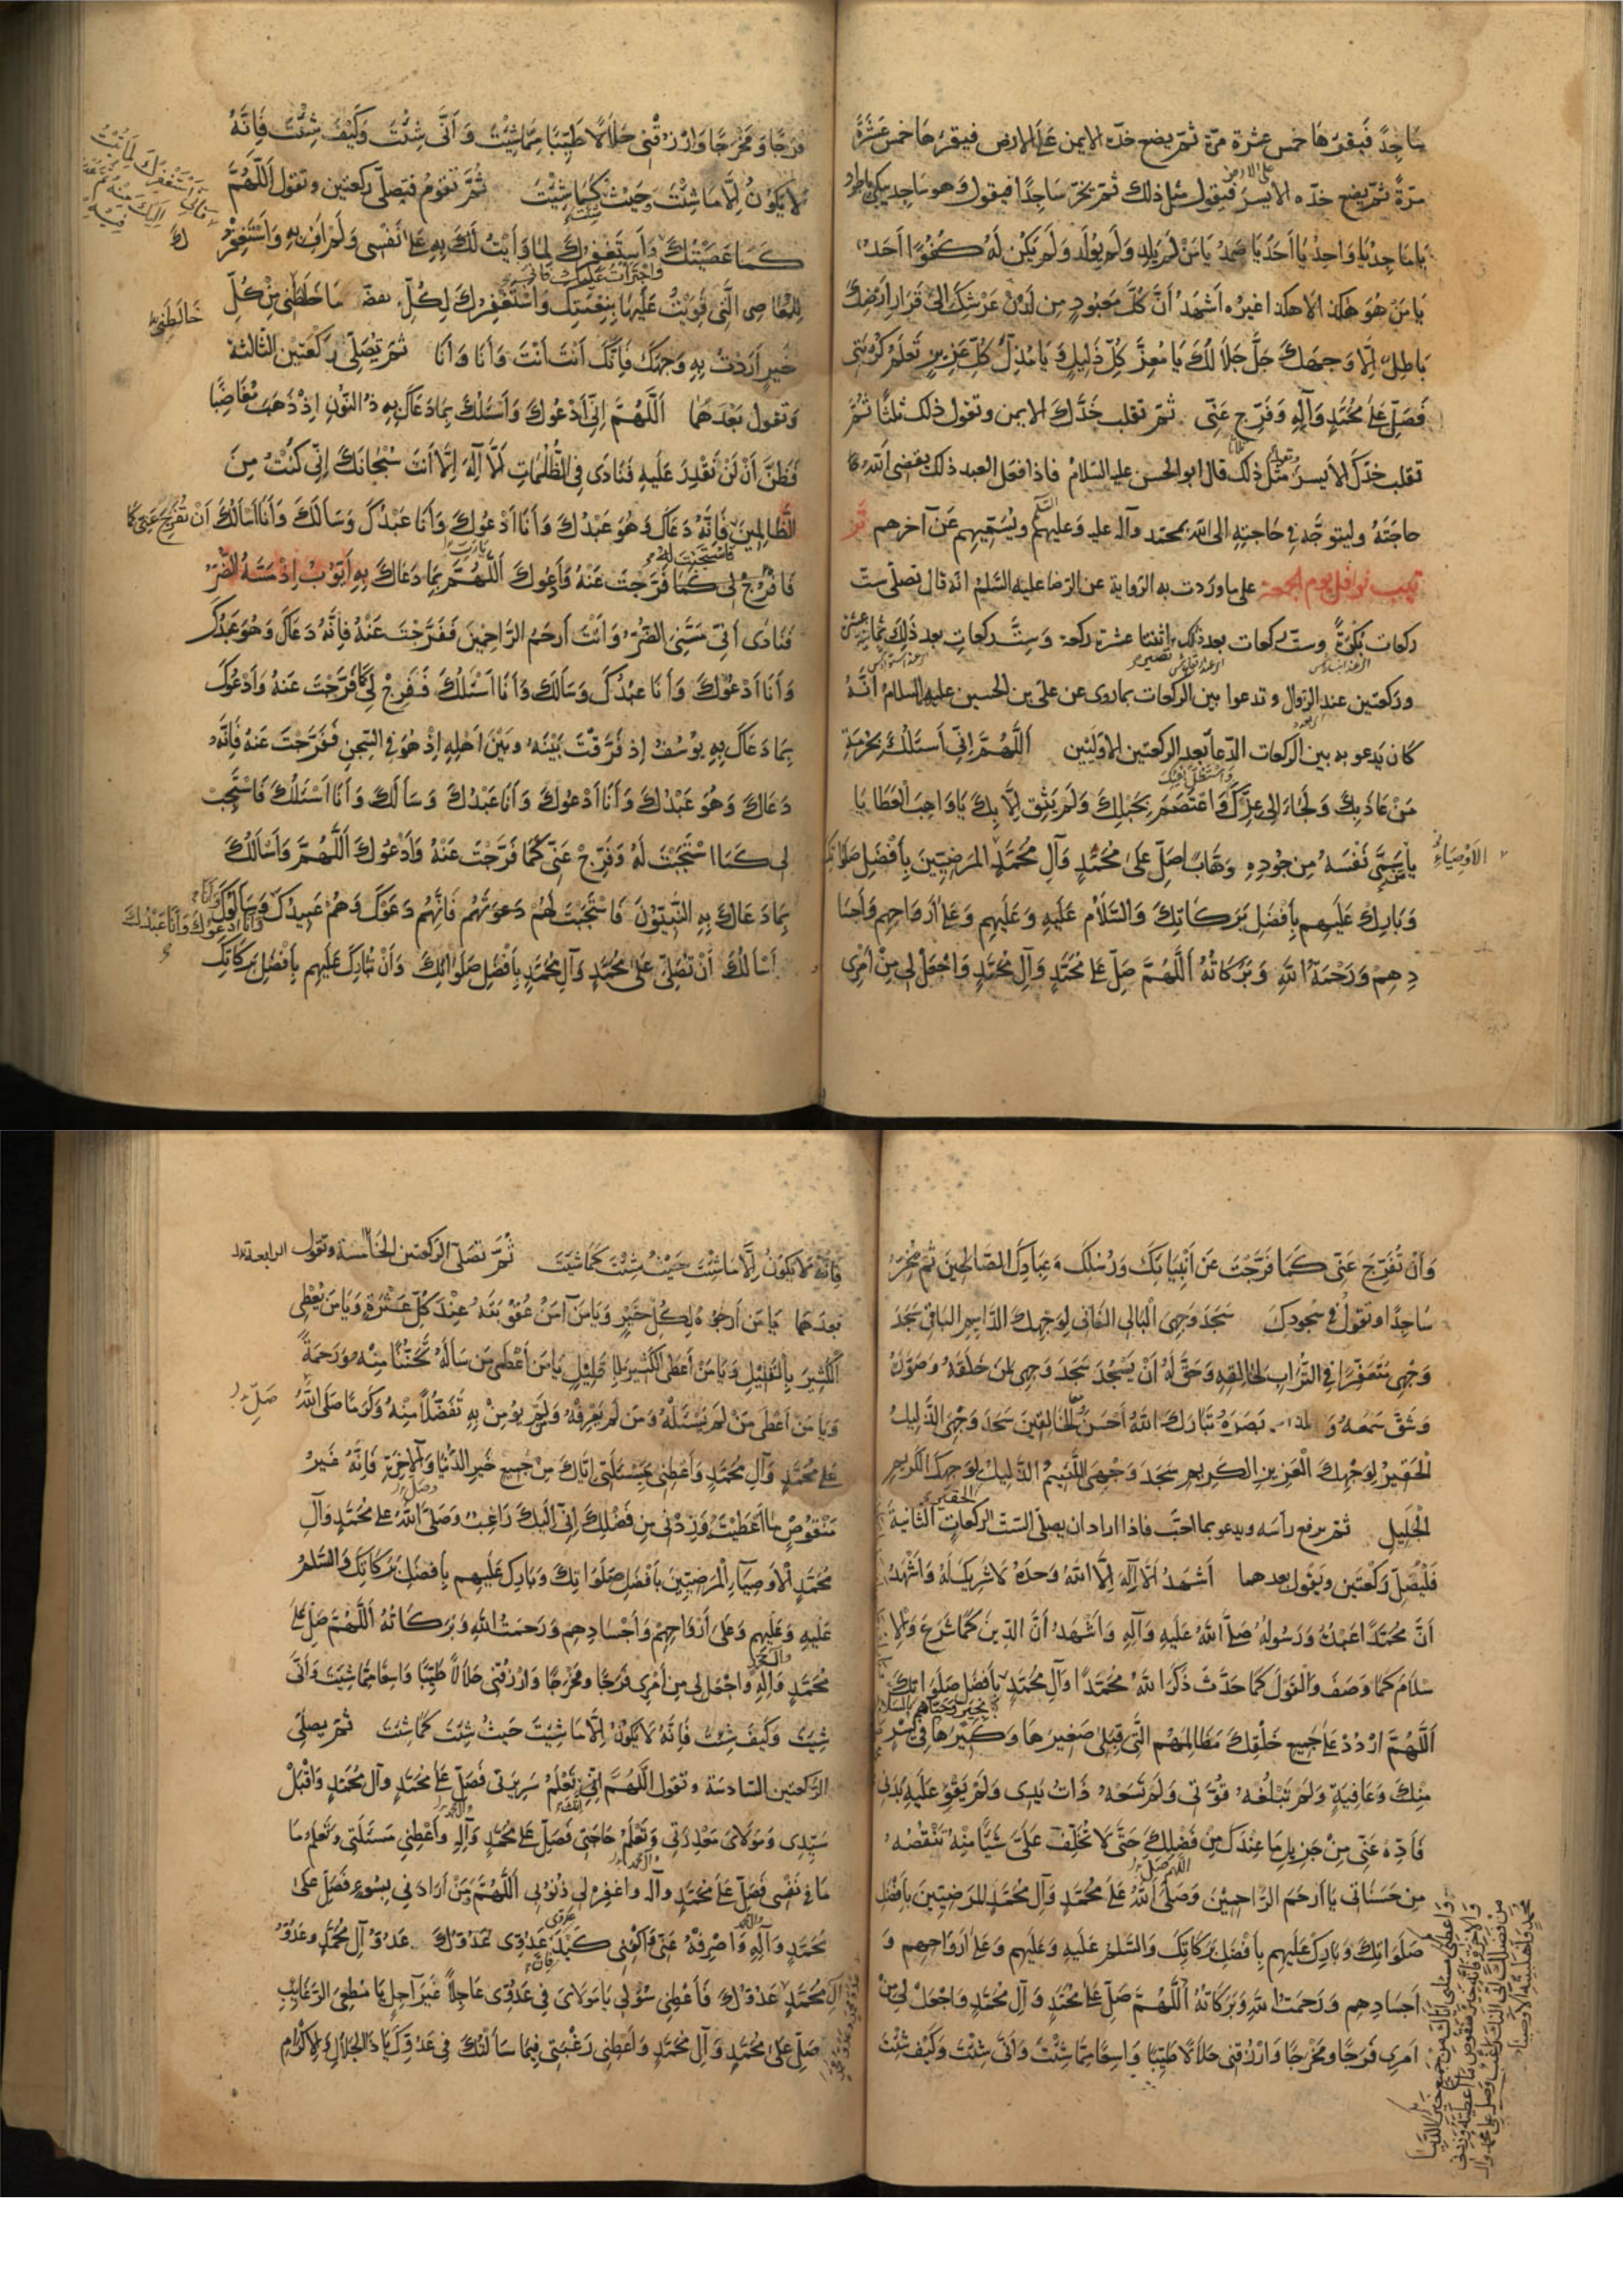 سَاجِدًا فَيقرؤها خمس عشرة مرّة ثمّ يضع خدّه الايمن عَلَى الارض فيقرؤها خمس عَشَرَةَ
مرّةً ثمّ يضع خدّه الايسَر فيقول مثل ذلك ثمّ يخرّ سَاجِدًا فيقول وَهو سَاجد يبكى
على الارض
يَا مَاجِدُ يَا وَاحِدُ يَا اَحَدُ يَا صَمَدُ يَا مَنْ لَمْ يَلِدْ وَلَمْ يُولَد وَلَمْ يَكُنْ لَهُ كُفُوًا اَحَدٌ
يَا مَنْ هُوَ هٰكذا لا هكذا غيره اَشْهَدُ اَنَّ كُلَّ مَعبُودٍ مِن لَدُنْ عَرْشِكَ اِلىٰ قَرَارِ اَرْضِكَ
بَاطِلٌ اِلَّا وَجهَكَ جَلَّ جَلَالُكَ يَا مُعِزَّ كُلِّ ذَلِيلٍ وَ يَا مُذِلَّ كُلِّ عَزِيزٍ تَعلَمُ كُرْبَتِى
فَصَلِّ عَلىٰ مُحَمَّدٍ وَآلِهِ وَفَرِّج عَنِّى ثمّ تقلب خَدَّكَ الايمن وتقول ذلك ثلثًا ثُمَّ
تقلب خدّك الايسر وتقول مثل ذلك قال ابو الحسن عليه السّلامُ فاذا فعل العبد ذلك يقضى اللّه
حاجَتَهُ وليتوجّه فى حَاجتِهِ الى اللّه بمحمّد وآله عليه وَعليهم السّلم ويُسَمّيهم عَن آخرهم
ترتيب نوافل يوم الجمعة على ما وردت به الرّواية عن الرّضا عليه السّلم انّه قال تصلّى ستّ
ركعات بُكْرَةً وستّ ركعات بعد ذلك اثنتا عشرة ركعة وَستّ ركعاتٍ بعد ذٰلِكَ ثمانى عشرة
وركعتين عند الزّوال وتدعوا بين الركعات بما روى عن علىّ بن الحسين عليه السلامُ اَنَّهُ
كان يَدعو به بين الركعات الدّعاَ بعد الركعتين الاوّليَين اَللّهُمَّ اِنّى اَسئَلُكَ بِحُرْمَةِ
مَنْ عَاذَ بِكَ وَلَجَاءَ اِلى عِزِّكَ وَاعْتَصَمَ بِحَبْلِكَ وَلَمْ يَثِقْ اِلَّا بِكَ يَا وَاهِبَ الْعَطَايَا يَا
وَاسْتَظَلَّ بِفَيْئِكَ
يا مَنْ سَمّٰى نَفْسَهُ مِن جُودِهِ وَهَّابًا صَلِّ عَلىٰ مُحَمَّدٍ وَآلِ مُحَمَّدٍ المَرضِيِّينَ بِاَفْضَلِ صَلَوَاتِكَ
الاَوْصِيَاءِ
وَبَارِك عَلَيهِم بِاَفْضَلِ بَرَكَاتِكَ وَالسَّلَامُ عَلَيهِ وَعَلَيهِم وَعَلىٰ اَروَاحِهِم وَاَجْسَا
دِهِمْ وَرَحْمَةُ اللّهِ وَبَرَكَاتُهُ اَللّٰهُمَّ صَلِّ عَلىٰ مُحَمَّدٍ وَآلِ مُحَمَّدٍ وَاجْعَلْ لِى مِنْ اَمْرِى
فَرَجًا وَمَخْرَجًا وَارْزُقْنِى حَلَالًا طَيِّبًا مِمَّا شِئْتَ وَاَنّٰى شِئْتَ وَكَيْفَ شِئْتَ فَاِنَّهُ
لَا يَكُوْنُ اِلَّا مَا شِئْتَ حَيْثُ شِئْتَ كَمَا شِئْتَ ثُمَّ تقومُ فتصلّى ركعتين وتقول اَللّهُمَّ
كَمَا عَصَيْتُكَ وَاجْتَرَأْتُ عَلَيكَ وَاَستَغفِرُكَ لِمَا وَأَيْتُ لَكَ بِهِ عَلىٰ نَفْسِى وَلَمْ اَفِ بِهِ وَاَسْتَغْفِرُكَ
لِلْمَعَاصِى الَّتِى قَوِيتُ عَلَيهَا بِنِعْمَتِكَ وَاَسْتَغْفِرُكَ لِكُلِّ مَا خَالَطَنِى مِنْ كُلِّ
خَالَطَنِى
خَيرٍ اَرَدْتُ بِهِ وَجهَكَ فَاِنَّكَ اَنْتَ اَنْتَ وَاَنَا وَاَنَا ثمّ تصَلّى ركعَتين الثالثة
وتقول بَعْدَهُمَا اَللّهُمَّ اِنّى اَدْعُوكَ وَاَسئَلُكَ بِمَا دَعَاكَ بِهِ ذُو النُّونِ اِذْ ذَهَبَ مُغَاضِبًا
فَظَنَّ اَنْ لَنْ نَقْدِرَ عَلَيهِ فَنَادَى فِى الظُّلُمَاتِ اَنْ لَا اِلٰهَ اِلَّا اَنتَ سُبْحَانَكَ اِنّى كُنْتُ مِنَ
الظَّالِمِينَ فَاِنَّهُ دَعَاكَ وَهُوَ عَبْدُكَ وَاَنَا اَدْعُوكَ وَاَنَا عَبْدُكَ وَسَاَلَكَ وَاَنَا اَسْاَلُكَ اَنْ تُفَرِّجَ عَنِّى كَمَا
فَافْرُجْ لى كَمَا فَرَّجتَ عَنْهُ وَاَدعُوكَ اَللّهُمَّ بِمَا دَعَاكَ بِهِ اَيُّوبُ اِذْ مَسَّهُ الضُّرُّ
فَنَادٰى اَنّى مَسَّنِىَ الضُّرُّ وَاَنْتَ اَرحَمُ الرَّاحِمِينَ فَفَرَّجْتَ عَنْهُ فَاِنَّهُ دَعَاكَ وَهُوَ عَبْدُكَ
وَاَنَا اَدْعُوْكَ وَاَنَا عَبْدُكَ وَسَاَلَكَ وَاَنَا اَسْئَلُكَ فَفَرِّجْ لِى كَمَا فَرَّجْتَ عَنْهُ وَاَدْعُوكَ
بِمَا دَعَاكَ بِهِ يُوْسُفُ اِذ فَرَّقْتَ بَيْنَهُ وبَيْنَ اَهلِهِ اِذْ هُوَ فِى السِّجنِ فَفَرَّجتَ عَنهُ فَاِنَّهُ
دَعَاكَ وَهُوَ عَبْدُكَ وَاَنَا اَدْعُوكَ وَاَنَا عَبْدُكَ وَسَاَلَكَ وَاَنَا اَسْئَلُكَ فَاسْتَجِبْ
لِى كَمَا اسْتَجَبْتَ لَهُ وَفَرِّجْ عَنّى كَمَا فَرَّجْتَ عَنْهُ وَاَدْعُوكَ اَللّهُمَّ وَاَسْاَلُكَ
بِمَا دَعَاكَ بِهِ النَّبِيّوْنَ فَاسْتَجَبْتَ لَهُمْ دَعوَتَهُم فَاِنَّهُم دَعَوْكَ وَهُمْ عَبِيدُكَ وَسَاَلُوكَ وَاَنَا
وَاَنَا اَدْعُوكَ وَاَنَا عَبْدُكَ
اَسْاَلُكَ اَنْ تُصَلِّىَ عَلىٰ مُحَمَّدٍ وَآلِ مُحَمَّدٍ بِاَفْضَلِ صَلَوَاتِكَ وَاَنْ تُبَارِكَ عَلَيهِم بِاَفْضَلِ بَرَكَاتِكَ
وَاَنْ تُفَرِّجَ عَنِّى كَمَا فَرَّجْتَ عَنْ اَنْبِيَائِكَ وَرُسُلِكَ وَعِبَادِكَ الصَّالِحِينَ ثُمَّ تَخُرُّ
سَاجِدًا وتقولُ فى سُجُودِكَ سَجَدَ وَجهِىَ الْبَالِى الفَانِى لِوَجْهِكَ الدَّايِمِ البَاقِى سَجَدَ
وَجْهِى مُتَعَفِّرًا فِى التُّرَابِ لِخَالِقِهِ وَحَقَّ لَهُ اَنْ يَسْجُدَ سَجَدَ وَجهِى لِمَنْ خَلَقَهُ وَصَوَّرَهُ
وَشَقَّ سَمْعَهُ وَ بَصَرَهُ تَبَارَكَ اللّهُ اَحْسَنُ الْخَالِقِينَ سَجَدَ وَجْهِىَ الذَّلِيلُ
الْحَقِيرُ لِوَجْهِكَ الْعَزِيزِ الكَرِيمِ سَجَدَ وَجْهِىَ اللَّئِيمُ الذَّلِيلُ لِوَجهِكَ الكَرِيمِ
الْجَلِيلِ ثمّ يرفع رأسَه ويدعو بما احَبّ فاذا اراد ان يصلّى السّت الركعات الثانية
فَلْيُصَلِّ رَكْعَتَين ويَقول بعدهما اَشْهَدُ اَنْ لَا اِلٰهَ اِلَّا اللّهُ وَحدَهُ لَا شَرِيكَ لَهُ وَاَشْهَدُ
اَنَّ مُحَمَّدًا عَبْدُهُ وَرَسُولُهُ صَلَّى اللّهُ عَلَيهِ وَآلِهِ وَاَشْهَدُ اَنَّ الدِّينَ كَمَا شَرَعَ وَالْاِ
سْلَامَ كَمَا وَصَفَ وَالْقَوْلَ كَمَا حَدَّثَ ذَكَرَ اللّهُ مُحَمَّدًا وَآلَ مُحَمَّدٍ بِاَفْضَلِ صَلَوَاتِكَ
اَللّٰهُمَّ ارْدُدْ عَلىٰ جَمِيعِ خَلْقِكَ مَظَالِمَهُم الَّتِى قِبَلِى صَغِيرَهَا وَكَبِيرَهَا فِى يُسْرٍ
مِنْكَ وَعَافِيَةٍ وَلَمْ تَبْلُغْهُ قُوَّتِى وَلَمْ تَسَعْهُ ذَاتُ يَدِى وَلَمْ يَقْوَ عَلَيهِ بَدَنِى
فَاَدِّهِ عَنِّى مِنْ جَزِيلِ مَا عِنْدَكَ مِن فَضْلِكَ حَتّٰى لَا تُخَلِّفَ عَلَىَّ شَيْئًا مِنْهُ تَنْقُصُهُ
مِن حَسَنَاتِى يَا اَرحَمَ الرَّاحِمِيْنَ وَصَلَّى اللّهُ عَلىٰ مُحَمَّدٍ وَآلِ مُحَمَّدٍ المَرضِيّينَ بِاَفْضَلِ
صَلَوَاتِكَ وَبَارِك عَلَيهِم بِاَفْضَلِ بَرَكَاتِكَ وَالسَّلَمُ عَلَيهِ وَعَلَيهِم وَعَلىٰ اَروَاحِهِم وَ
اَجسَادِهِم وَرَحمَتُ اللّهِ وَبَرَكَاتُهُ اَللّهُمَّ صَلِّ عَلىٰ مُحَمَّدٍ وَآلِ مُحَمَّدٍ وَاجْعَلْ لِى مِنْ
اَمرِى فَرَجًا ومَخْرَجًا وَارْزُقْنِى حَلَالًا طَيِّبًا وَاسِعًا مِمَّا شِئْتَ وَاَنّٰى شِئْتَ وَكَيْفَ شِئْتَ
وَاَعْطِنِى بِمَسْئَلَتِى اِيَّاكَ مِن جَمِيعِ خَيرِ الدُّنْيَا
وَالاٰخِرَةِ فَاِنَّهُ غَيرُ مَنْقُوصٍ مَا اَعْطَيْتَ وَزِدْنِى
مِن فَضْلِكَ اِنّى اِلَيْكَ رَاغِبٌ وَصَلِّ عَلىٰ مُحَمَّد وَآلِ
مُحَمَّدٍ وَاَهْلِبَيْتِهِ الْاَوْصِيَاءِ
فَاِنَّهُ لَا يَكُونُ اِلَّا مَا شِئْتَ حَيْثُ شِئْتَ كَمَا شِئْتَ ثُمَّ تصَلّى الركعتين الخَامسة وتقول
بعدَهما يَا مَن اَرجُوهُ لِكُلِّ خَيْرٍ وَيَا مَنْ آمَنُ عُقُوبَتَهُ عِنْدَ كُلِّ عَثْرَةٍ وَيَا مَنْ يُعْطِى
الْكَثِيرَ بِالْقَلِيلِ وَيَا مَنْ اَعْطَى الْكَثِيرَ بِالْقَلِيلِ يَا مَنْ اَعْطٰى مَنْ سَاَلَهُ تَحَنُّنًا مِنْهُ وَرَحمَةً
وَيَا مَنْ اَعْطٰى مَنْ لَمْ يَسْئَلْهُ وَمَن لَمْ يَعْرِفْهُ وَلَم يُؤمِنْ بِهِ تَفَضُّلًا مِنْهُ وَكَرَمًا صَلَّى اللّهُ
صَلِّ
عَلىٰ مُحَمَّدٍ وَآلِ مُحَمَّدٍ وَاَعْطِنِى بِمَسْئَلَتِى اِيَّاكَ مِنْ جَمِيعِ خَيرِ الدُّنْيَا وَالْاٰخِرَةِ فَاِنَّهُ غَيرُ
مَنْقُوصٍ مَا اَعْطَيْتَ وَزِدْنِى مِن فَضْلِكَ اِنّى اِلَيكَ رَاغِبٌ وَصَلَّى اللّهُ عَلىٰ مُحَمَّدٍ وَآلِ
مُحَمَّدٍ الْاَوصِيَاءِ الْمَرضِيّينَ بِاَفْضَلِ صَلَوَاتِكَ وَبَارِك عَلَيهِم بِاَفضَلِ بَرَكَاتِكَ وَالسَّلَمُ
عَلَيهِ وَعَلَيهِم وَعَلىٰ اَرْوَاحِهِمْ وَاَجْسَادِهِم وَرَحمَتُ اللّهِ وَبَرَكَاتُهُ اَللّهُمَّ صَلِّ عَلىٰ
مُحَمَّدٍ وَآلِهِ وَاجْعَل لِى مِن اَمْرِى فَرَجًا ومَخْرَجًا وَارْزُقْنِى حَلَالًا طَيِّبًا وَاسِعًا مِمَّا شِئْتَ وَاَنّٰى
شِئتَ وَكَيفَ شِئتَ فَاِنَّهُ لَا يَكُوْنُ اِلَّا مَا شِئتَ حَيثُ شِئتَ كَمَا شِئتَ ثمّ يصلّى
الرّكعتين السّادسَة وتقول اَللّهُمَّ اِنَّكَ تَعْلَمُ سَرِيرَتِى فَصَلِّ عَلىٰ مُحَمَّدٍ وَآلِ مُحَمَّدٍ وَاقْبَلْ
سَيِّدِى وَمَوْلَاىَ مَعْذِرَتِى وَتَعْلَمُ حَاجَتِى فَصَلِّ عَلىٰ مُحَمَّدٍ وَآلِهِ وَاَعْطِنِى مَسئَلَتِى وَتَعْلَمُ مَا
مَا فى نَفْسِى فَصَلِّ عَلىٰ مُحَمَّدٍ وآله وَاغفِرْ لى ذُنُوبِى اَللّهُمَّ مَنْ اَرَادَنِى بِسُوءٍ فَصَلِّ عَلىٰ
مُحَمَّدٍ وَآلِهِ وَاصْرِفْهُ عَنِّى وَاكْفِنِى كَيْدَ عَدُوِّى عَدُوَّكَ عَدُوّ آلِ مُحَمَّدٍ وعَدُوّ
آلِ مُحَمَّدٍ عَدُوّكَ فَاَعْطِنِى سُؤْلِى يَا مَوْلَاىَ فِى عَدُوِّى عَاجِلًا غَيرَ آجِلٍ يَا مُعْطِىَ الرَّغَايِبِ
صَلِّ عَلىٰ مُحَمَّدٍ وَآلِ مُحَمَّدٍ وَاَعْطِنِى رَغْبَتِى فِيمَا سَاَلْتُكَ فِى عَدُوِّكَ يَا ذَا الجَلَالِ وَالاِكْرَامِ